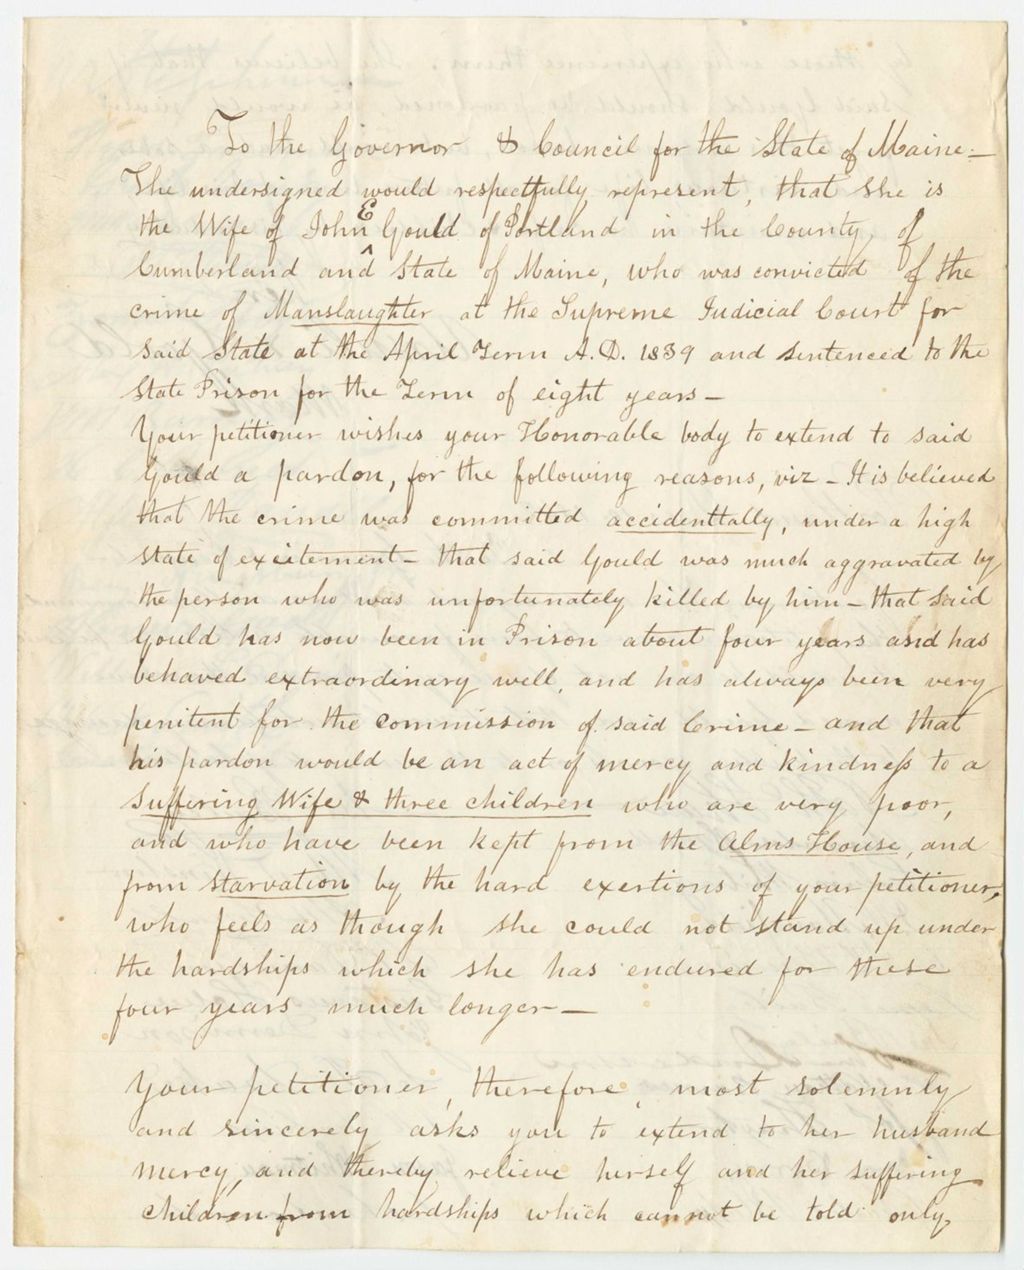 To the Governor & Council for the State of Maine —
The undersigned would respectfully represent, that she is
the Wife of John E Gould of Portland in the County of
Cumberland and State of Maine, who was convicted of the
crime of Manslaughter at the Supreme Judicial Court for
said State at the April Term A.D. 1839 and sentenced to the
State Prison for the Term of eight years —
Your petitioner wishes your Honorable body to extend to said
Gould a pardon, for the following reasons, viz — It is believed
that the crime was committed accidenttally, under a high
state of excitement — that said Gould was much aggravated by
the person who was unfortunately killed by him — that said
Gould has now been in Prison about four years and has
behaved extraordinary well, and has always been very
penitent for the commission of said Crime — and that
his pardon would be an act of mercy and kindness to a
suffering Wife & three children who are very poor,
and who have been kept from the Alms House, and
from starvation by the hard exertions of your petitioner,
who feels as though she could not stand up under
the hardships which she has endured for these
four years much longer —
Your petitioner, therefore, most solemnly
and sincerely asks you to extend to her husband
mercy, and thereby relieve herself and her suffering
children from hardships which cannot be told only